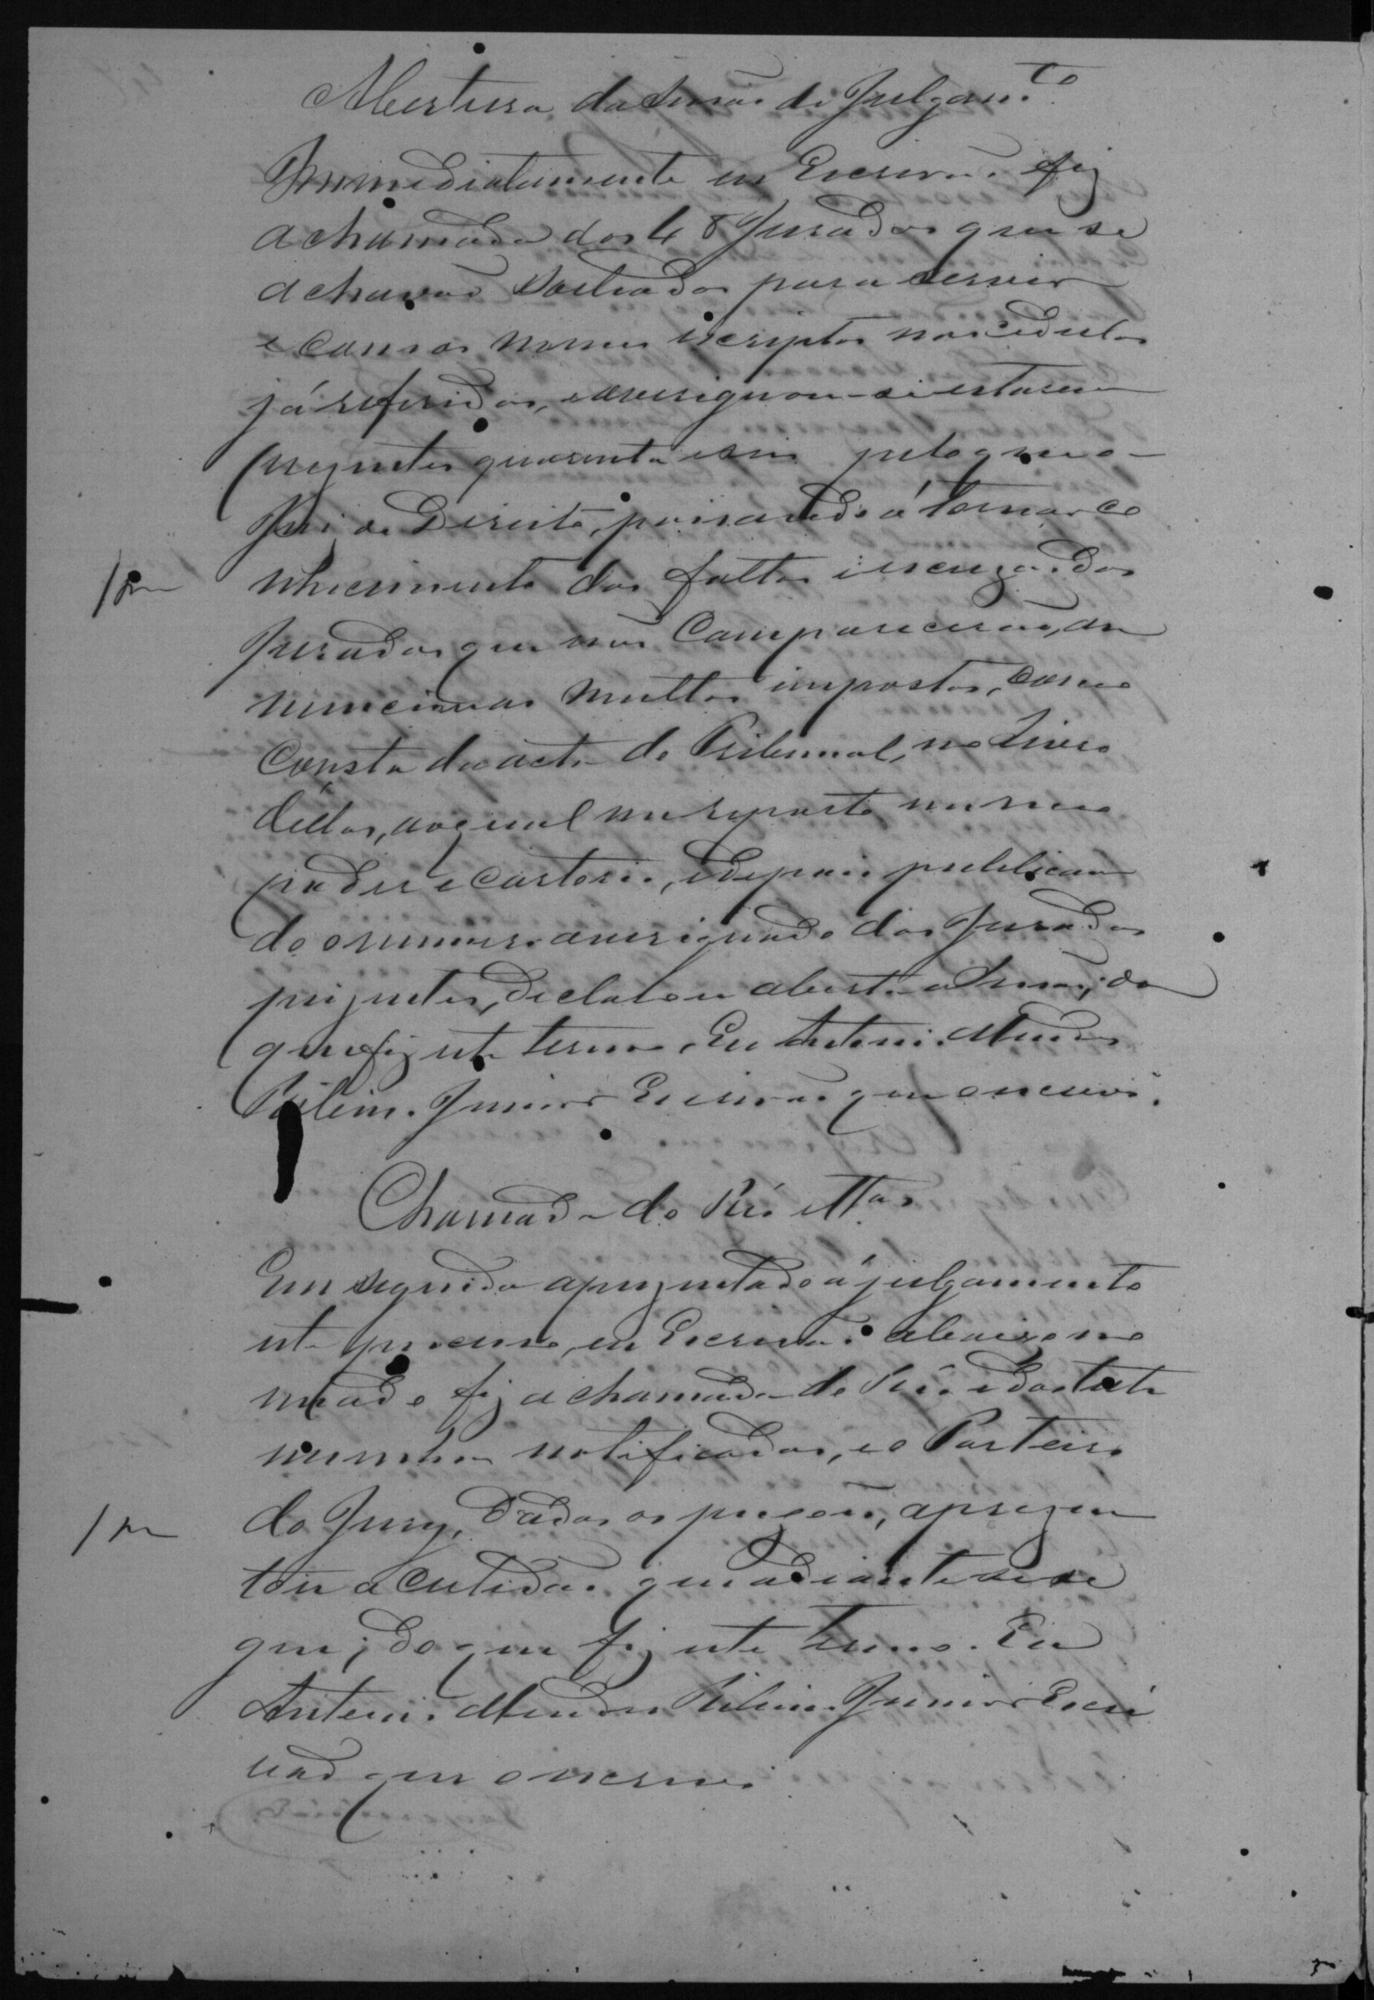 Abertura da Sessão de Julgam.to
Immediatamente eu Escrivão fiz
a chamada dos 48 Jurados que se
achavão sorteados para servir
e com os nomes iscriptos nas cedulas
já referidas, e averiguou-se estarem
prezentes quarenta e seis pelo que o
Juiz de Direito, passando á tomar co
nhecimento das faltas i escuzas dos
Jurados que não comparecerão,
multas impostas, como
consta da acta do Tribunal, no Livro
dellas, ao qual me reporto em meo
poder e cartorio, e depois publican
do o numero averiguado dos Jurados
prezentes, declarou aberta a Sessão; do
que fiz este termo. Eu Antonio Mendes
Ribeiro Junior Escrivão que o escrevi.
Chamada do Réo e Ttas
Em seguida aprezentado á julgamento
este processo, eu Escrivão abaixo no
meado fiz a chamada do Réo e das teste
munhas notificadas, e o Porteiro
do Jury, dados os pregões, aprezen
tou a certidão que adiante se se
gue; do que fiz este termo. Eu
Antonio Mendes Ribeiro Junior Escri
vão que o escrevi